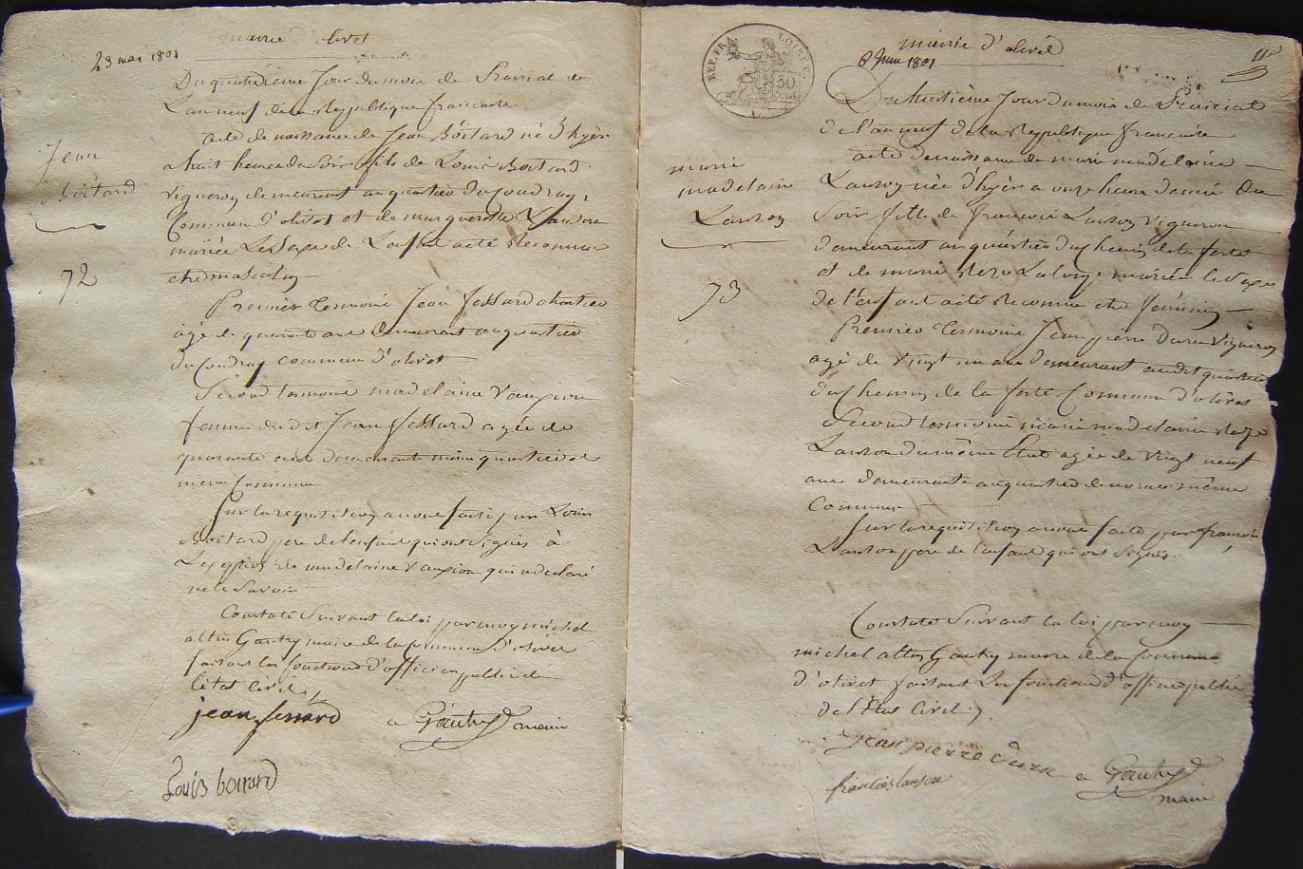 mairie d'olivet
23 mai 1801
Du quatrième Jour du mois de Prairial de
L'an neuf de la République française
acte de naissance de Jean Boitard né d'hyèr
a huit heure du Soir fils de Louis Boitard
vigneron demeurant au quartier du Coudray,
Commune d'olivet et de marguerite
mariée Le Sexe de L'enfant acté Reconnue
etre masculin
Jean
Boitard
72
Premier Temoine Jean
agé de quarante ans demeurant au quartier
du Coudray commune d'olivet
Second temoine madelaine Vauxion
femme dudit Jean agée de
quarante ans demeurant meme quartier et
meme Commune
Sur la requisition a nous faite par Louis
Boitard pere de l'enfant qui ont Signés à
L'exception de madelaine Vauxion qui a declaré
ne le Savoir
Constaté Suivant la loi par moy michel
Gautry maire de la Commune d'olivet
faisant les fonctions d'officier public de
l'etat Civil
jean
a Gautry
maire
Louis boitard
REP. FRA.
50
mairie d'olivet
8 Juin 1801
Du huitième Jour du mois de Prairial
de l'an neuf de la République française
acte de naissance de marie madelaine
Lanson née d'hyèr a onze heure demie du
Soir fille de françois Lanson vigneron
demeurant au quartier du Chemin de la ferté
et de marie mariée le Sexe
de l'enfant acté Reconnue etre feminin
marie
madelaine
Lanson
73
Premier Temoine Jean pierre vigneron
agé de vingt un ans demeurant audit quartier
du Chemin de la ferté Commune d'olivet
Second temoine marie madelaine
Lanson du même Etat agée de vingt neuf
ans demeurante au quartier même
Commune
Sur la requisition a nous faite par françois
Lanson pere de l'enfant qui ont Signés.
Constaté Suivant la loi par moy
michel Gautry maire de la Commune
d'olivet faisant Les fonctions d'officier public
de l'Etat Civil
jean pierre
a Gautry
maire
francois lanson